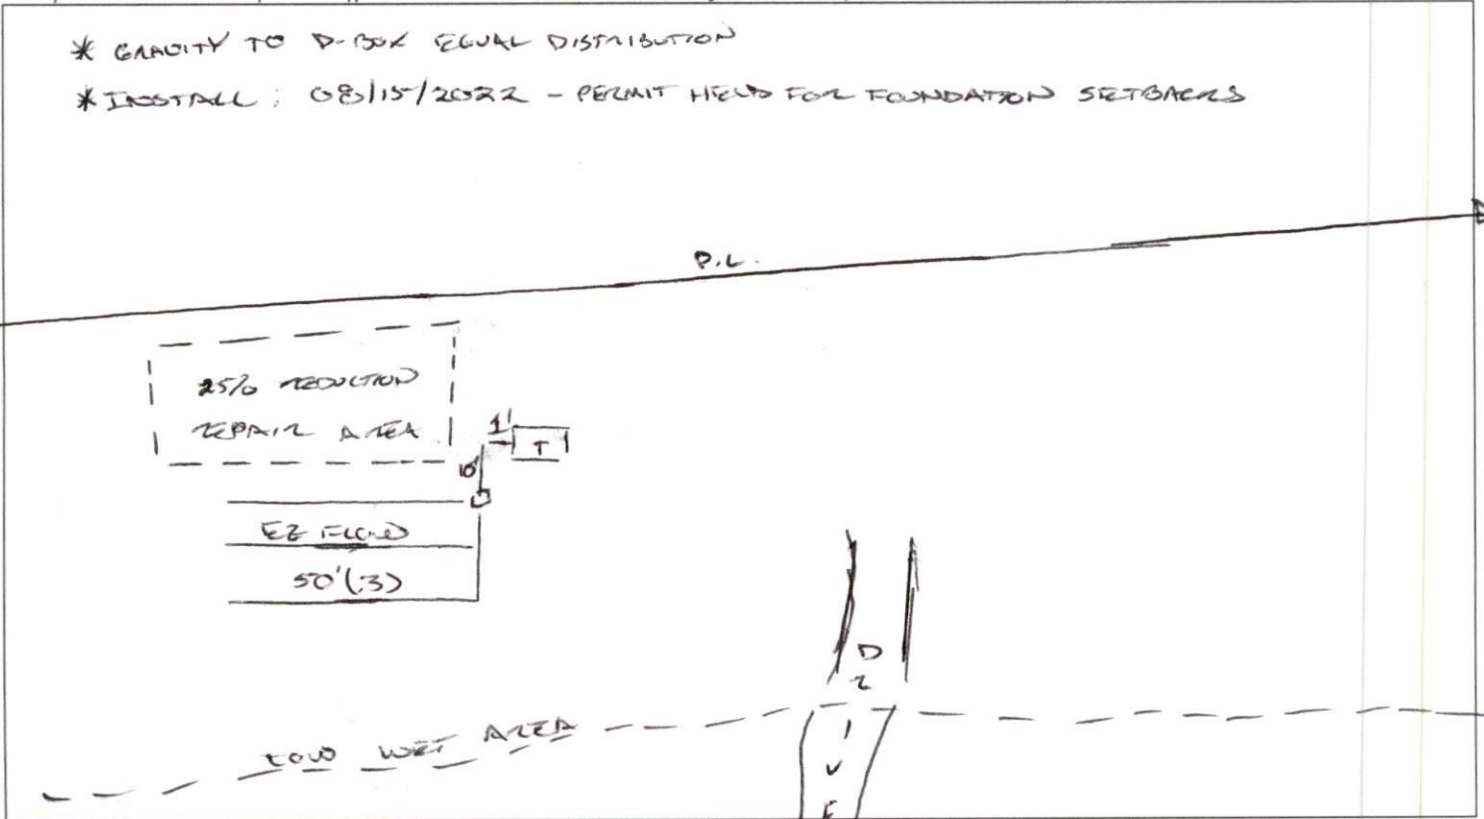 * GRAVITY TO D-BOX EQUAL DISTRIBUTION
* INSTALL: 08/15/2022 - PERMIT HELD FOR FOUNDATION SETBACKS
P.L.
25% REDUCTION
REPAIR AREA
1'
T
10'
EZ FLOW
50'(3)
DRIVE
LOW WET AREA